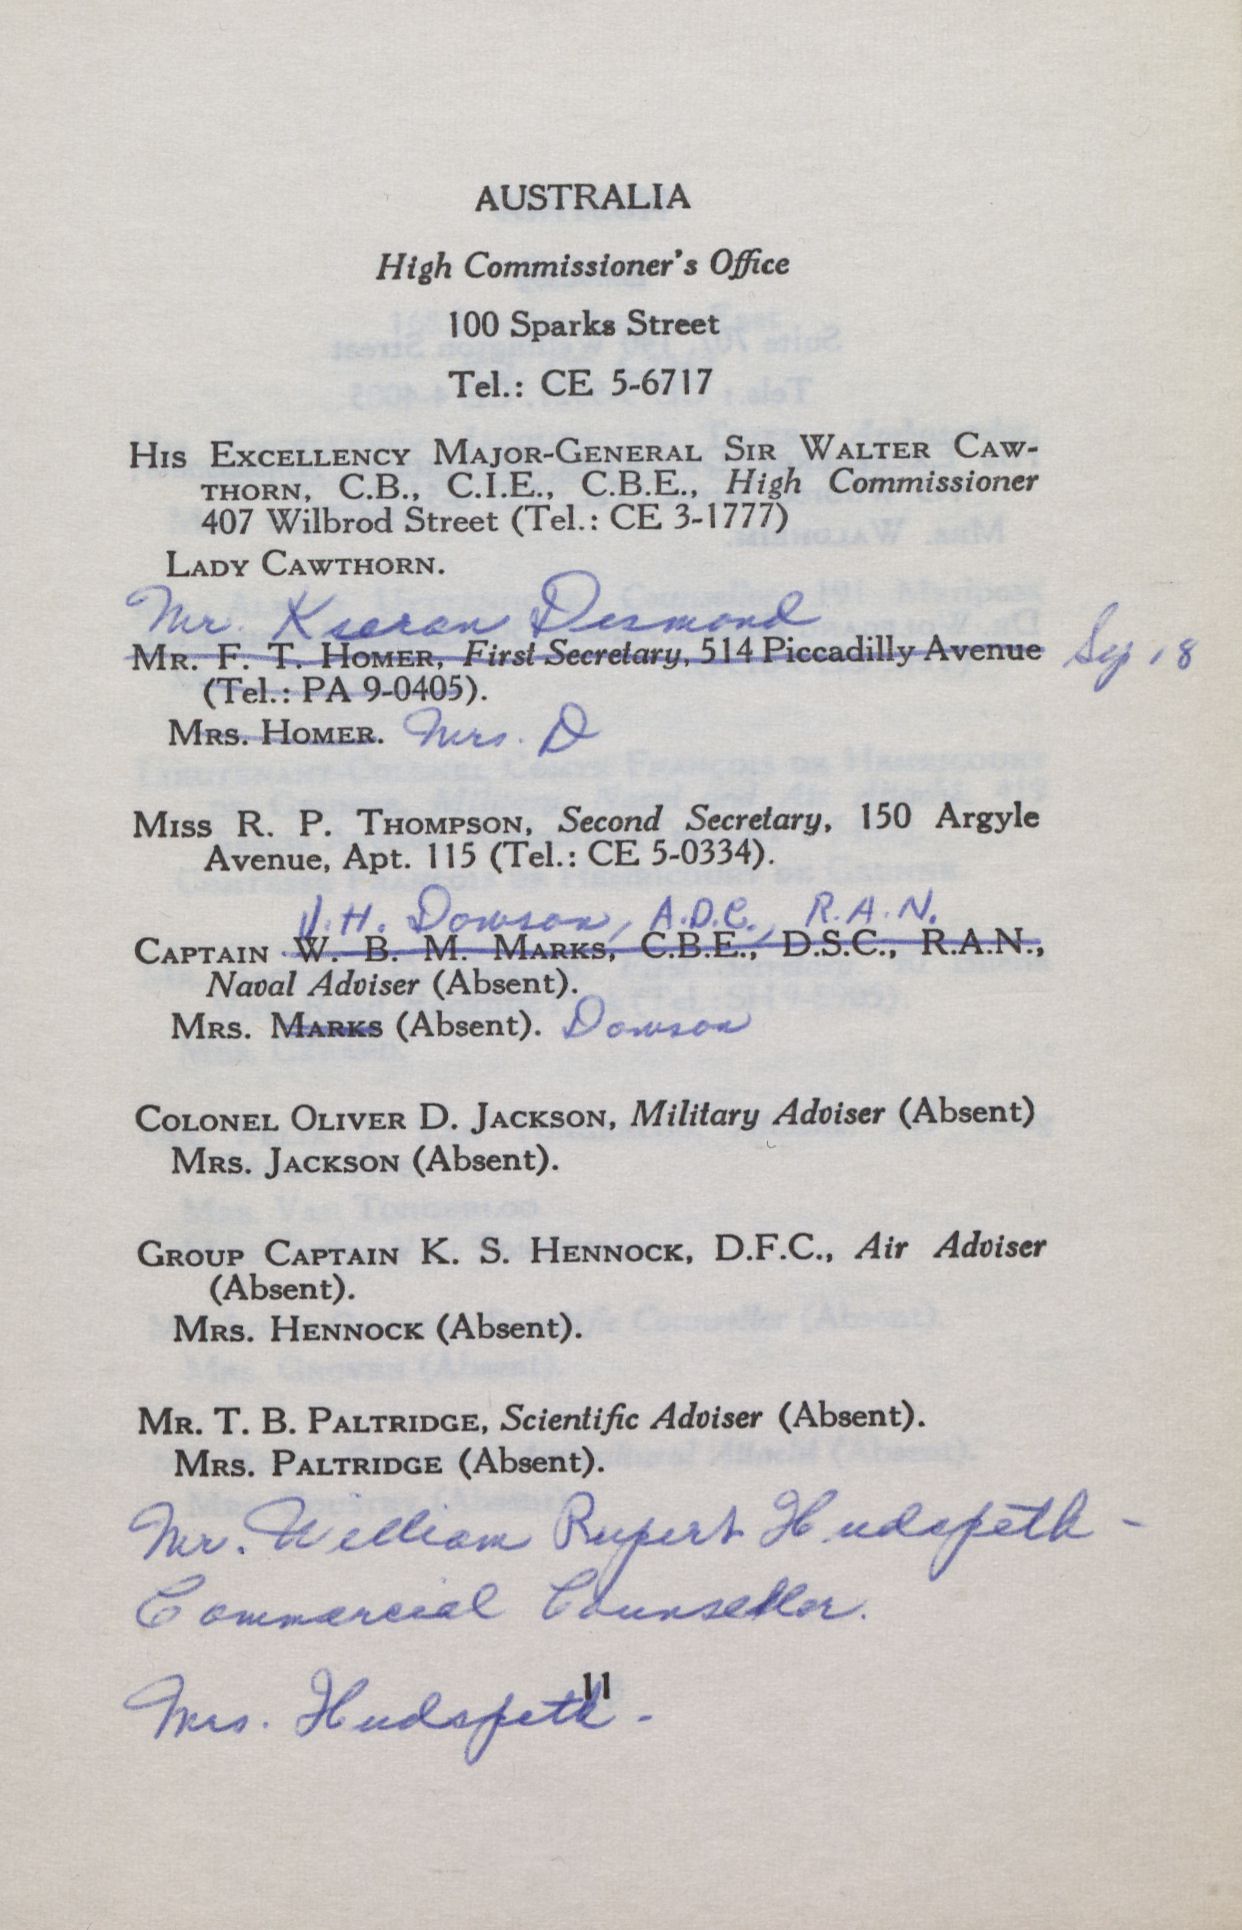 AUSTRALIA
High Commissioner's Office
100 Sparks Street
Tel.: CE 5-6717
HIS EXCELLENCY MAJOR-GENERAL SIR WALTER CAW-
THORN, C.B., C.I.E., C.B.E., High Commissioner
407 Wilbrod Street (Tel.: CE 3-1777)
LADY CAWTHORN.
Mr. Desmond
MR. F. T. HOMER, First Secretary, 514 Piccadilly Avenue Sep 18
(Tel.: PA 9-0405).
MRS. HOMER. Mrs. D
MISS R. P. THOMPSON, Second Secretary, 150 Argyle
Avenue, Apt. 115 (Tel.: CE 5-0334).
H. Dowson, A.D.C., R.A.N.
CAPTAIN W. B. M. MARKS, C.B.E., D.S.C., R.A.N.,
Naval Adviser (Absent).
MRS. MARKS (Absent). Dowson
COLONEL OLIVER D. JACKSON, Military Adviser (Absent)
MRS. JACKSON (Absent).
GROUP CAPTAIN K. S. HENNOCK, D.F.C., Air Adviser
(Absent).
MRS. HENNOCK (Absent).
MR. T. B. PALTRIDGE, Scientific Adviser (Absent).
MRS. PALTRIDGE (Absent).
Mr. William Rupert Hudspeth -
Commercial Counsellor.
Mrs. Hudspeth -
11